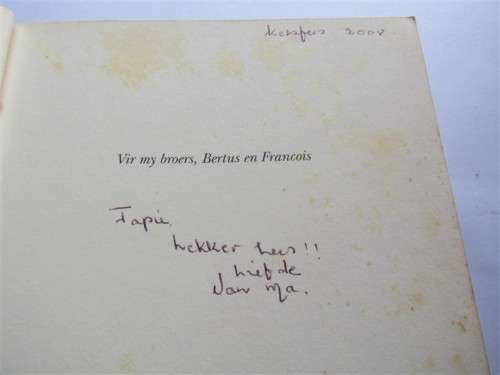 Kersfees 2008
Vir my broers, Bertus en Francois
Tapie,
Lekker lees!!
Liefde
Van Ma.